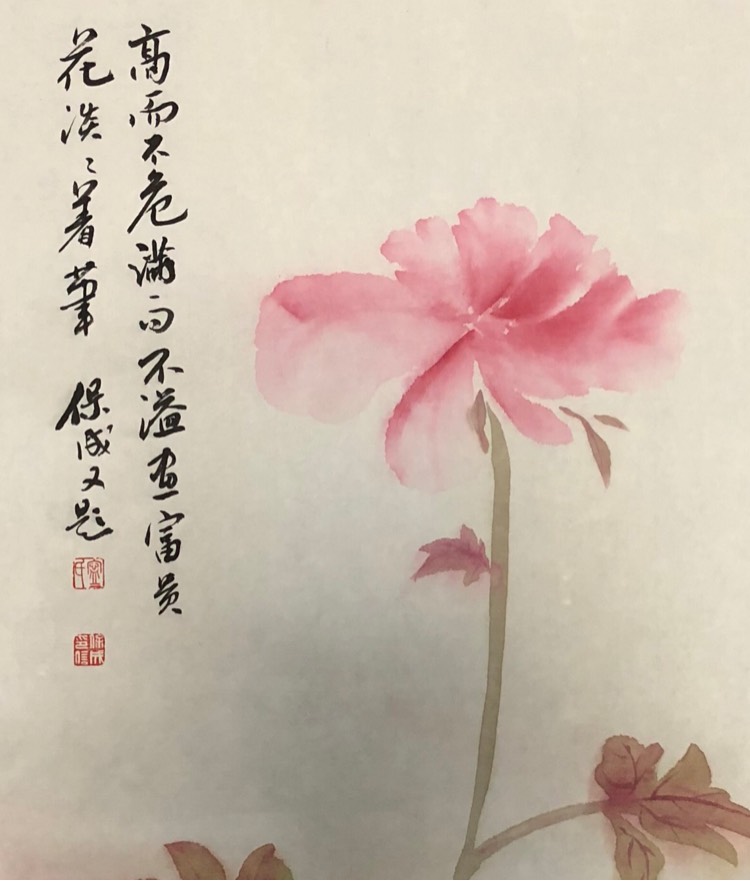 高而不危满而不溢画富贵
花淡淡着笔 保成又题